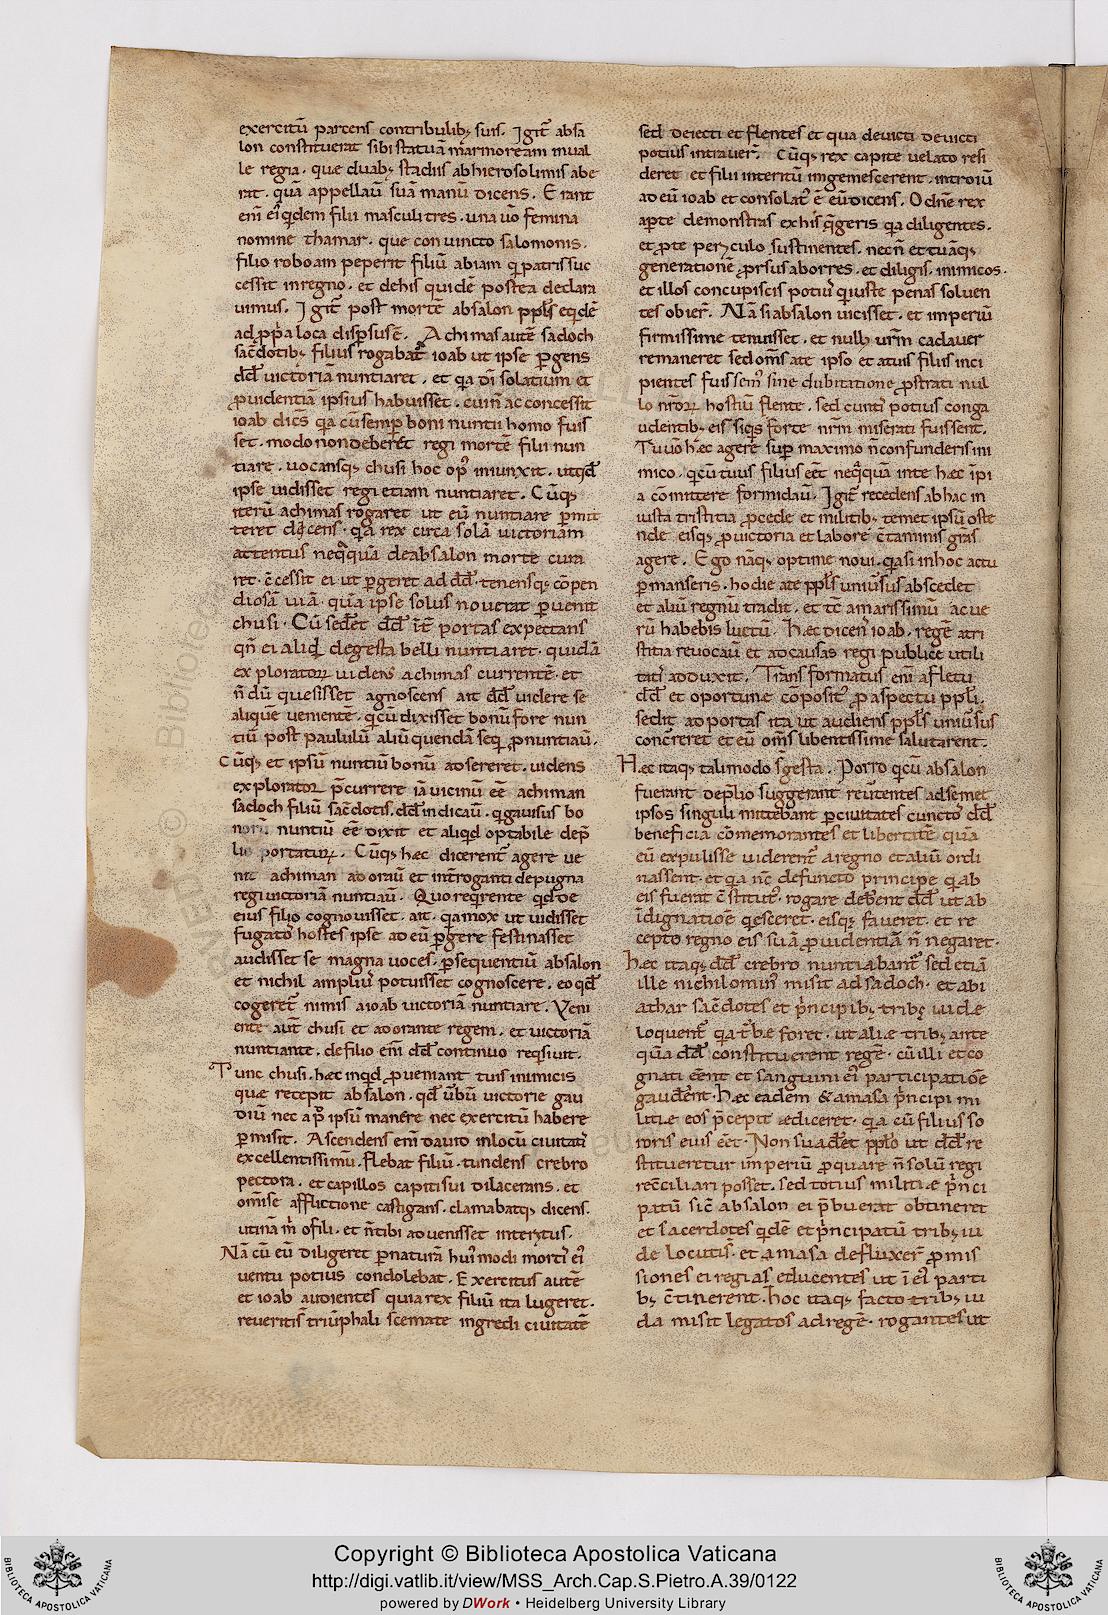 exercitū parcens contribulibꝫ suis. Igit᷑ absa
lon constituerat sibi statuā marmoream in ual
le regia. que duabꝫ stadiis ab hierosolimis abe
rat. quā appellauī suā manū dicens. Erant
enī ei qͥdem filii masculi tres. una uo femina
nomine thamar. que coniuncto salomonis.
filio roboam peperit filiū abiam qͥ patri suc
cessit in regno. et de his quidē postea declara
uimus. Igit᷑ post mortē absalon ppl̄s eqͥdē
ad ppͥa loca disp̱sus ē. Achimas autē sadoch
sac̄dotibꝫ filius rogabat ioab ut ipse ꝑgens
dd̄ victoriā nuntiaret. et qͥa dī solatium et
ꝓuidentiā ipsius habuisset. cui n̄ ac concessit
ioab dices qͥa cū semꝑ boni nuntii homo fuis
set. modo non deberet regi mortē filii nun
tiare. uocansqꝫ chusi hoc op᷒ iniunxit. ut qd̄
ipse uidisset regi etiam nuntiaret. Cūqꝫ
iterū achimas rogaret ut eū nuntiare ꝑmit
teret dicens. qͥa rex circa solā uictoriam
attentus neqͣquā de absalon morte cura
ret. c̄cessit ei ut ꝑgeret ad dd̄. tenensqꝫ cōpen
diosā uiā. quā ipse solus nouerat ꝑuenit
chusi. Cū sederet dd̄ int̄ portas expectans
qn̄ ei aliqd̄ de gesta belli nuntiaret. quidā
exploratorꝝ uidens achimas currentē. et
n̄ dū quesisset agnoscens ait dd̄ uidere se
aliquē uenientē. qͥ cū dixisset bonū fore nun
tiū post paululū aliū quendā seqͥ ꝓnuntiauī.
Cūqꝫ et ipsū nuntiū bonū adsereret. uidens
explorator p̄currere iā uicinū eē achiman
sadoch filiū sac̄dotis. dd̄ indicauī. qͥ gauisus bo
norū nuntiū eē dixit et aliqd̄ optabile de p̄
lio portaturꝫ. Cūqꝫ hec dicerent᷑ agere ue
nit achiman adorauī et int̄roganti de pugna
regi uictoriā nuntiauī. Quo reqͥrente qd̄ de
eius filio cognouisset. ait. qͥa mox ut uidisset
fugatos hostes ipse ad eū ꝑgere festinasset
audisset se magna uoces. ꝑsequentiū absalon
et nichil ampli᷒ potuisset cognoscere. eo qd̄
coger et᷑ nimis a ioab uictoriā nuntiare. Veni
ente aut̄ chusi et adorante regem. et uictoriā
nuntiante. de filio enī dd̄ continuo reqͥsiuit.
Tunc chusi. hec inqͥd ꝓueniant tuis inimicis
quæ recepit absalon. qd̄ ūbū uictorie gau
diū nec ap̄ ipsū manere nec exercitū habere
ꝑmisit. Ascendens enī dauid in locū ciuitatis
excellentissimū. flebat filiū. tundens crebro
pectora. et capillos capiti sui dilacerans. et
omīse afflictione castigans. clamabatqꝫ dicens.
utinā m̄ o fili. et n̄ tibi aduenisset interitus.
Nā cū eū diligeret ꝑ naturā hui᷒modi mortis ei᷒
uentu potius condolebat. Exercitus autē
et ioab audientes quia rex filiū ita lugeret.
reueritis triūphali scemate ingredi ciuitatē
sed deiecti et flentes et qua deuicti deuicti
potius intrauer̄. Cūqꝫ rex capite uelato resi
deret et filii interitū ingemesceret. introiuī
ad eū ioab et consolat᷑ ē eū dicens. O dn̄e rex
aꝑte demonstras ex his qͣ geris qͥa diligentes.
et ꝓ te periculo sustinentes. nec n̄ et tuāqꝫ
generationē ꝓrsus aborres. et diligis. inimicos.
et illos concupiscis potius qͥ iuste penas soluen
tes obier̄. Nā si absalon uicisset. et imperiū
firmissime tenuisset. et null᷒ ur̄m cadauer
remaneret sed om̄s a te ipso et a tuis filiis inci
pientes fuissem᷒ sine dubitatione ꝓstrati nul
lo nr̄orꝝ hostiū flente. sed cuncti potius conga
udentibꝫ. eis siqͥs forte nr̄m miserati fuissent.
Tu uō hec agere suꝑ maximo n̄ confunderis ini
mico. qͥ cū tuus filius eēt neqͣquā in te hec īpi
a comittere formidauī. Igit᷑ recedens ab hac in
iusta tristitia ꝓcede et militibꝫ temet ipsū oste
nde. eisqꝫ ꝓ uictoria et labore c̄taminis grās
agere. Ego nāqꝫ optime noui. qͥa si in hoc actu
ꝑmanseris. hodie a te ppl̄s uniūsus abscedet
et aliū regnū tradit. et tc̄ amarissimū ac ue
rū habebis luctū. Hec dicens ioab. regē a tri
stitia reuocauī et ad causas regi publice utili
tatis adduxit. Transformatus enī a fletu
dd̄ et oportune cōposit᷒ ꝓ aspectu ppl̄i.
sedit ad portas ita ut audiens ppl̄s uniūsus
concurreret et eū om̄s libentissime salutarent.
Hec itaqꝫ tali modo s̄t gesta. Porro qͥ cū absalon
fuerant de p̄lio suggerant reūtentes ad semet
ipsos singuli mittebant ꝑ ciuitates cuncto dd̄
beneficia cōmemorantes et libertatē quā
eū expulisse uiderent᷑ a regno et aliū ordi
nassent. et qͥa nc̄ defuncto principe qͥ ab
eis fuerat c̄stitut᷒. rogare deberent dd̄ ut ab
īdignatiōe qͥesceret. eisqꝫ faueret. et re
cepto regno eis suā ꝓuidentiā n̄ negaret.
hec itaqꝫ dd̄ crebro nuntiabant᷑ sed etiā
ille nichilomin᷒ misit ad sadoch. et abi
athar sac̄dotes et p̄ncipibꝫ tribꝫ iudæ
loquent᷑ qͥa t᷑be foret. ut aliæ tribꝫ ante
quā dd̄ constituerent regē. cū illi et co
gnati eēnt et sanguini ei᷒ participatiōe
gaudent. hec eadem & amasa p̄ncipi mi
litiæ eos p̄cepit ædiceret. qͥa cū filius so
roris eius eēt. Non suadet pplo ut dd̄ re
stitueretur imperiū ꝓ quare n̄ solū regi
rec̄ciliari posset. sed totius militiæ p̄nci
patū sic̄ absalon ei p̄buerat obtineret
et sacerdotes qͥdē et p̄ncipatū tribꝫ iu
de locutis. et amasa defluxer̄ ꝓmis
siones ei regias educentes ut ī ei᷒ parti
bꝫ c̄tinerent. hoc itaqꝫ facto tribꝫ iu
da misit legatos ad regē. rogantes ut
Copyright © Biblioteca Apostolica Vaticana
http://digi.vatlib.it/view/MSS_Arch.Cap.S.Pietro.A.39/0122
powered by DWork • Heidelberg University Library
BIBLIOTECA APOSTOLICA VATICANA
BIBLIOTECA APOSTOLICA VATICANA